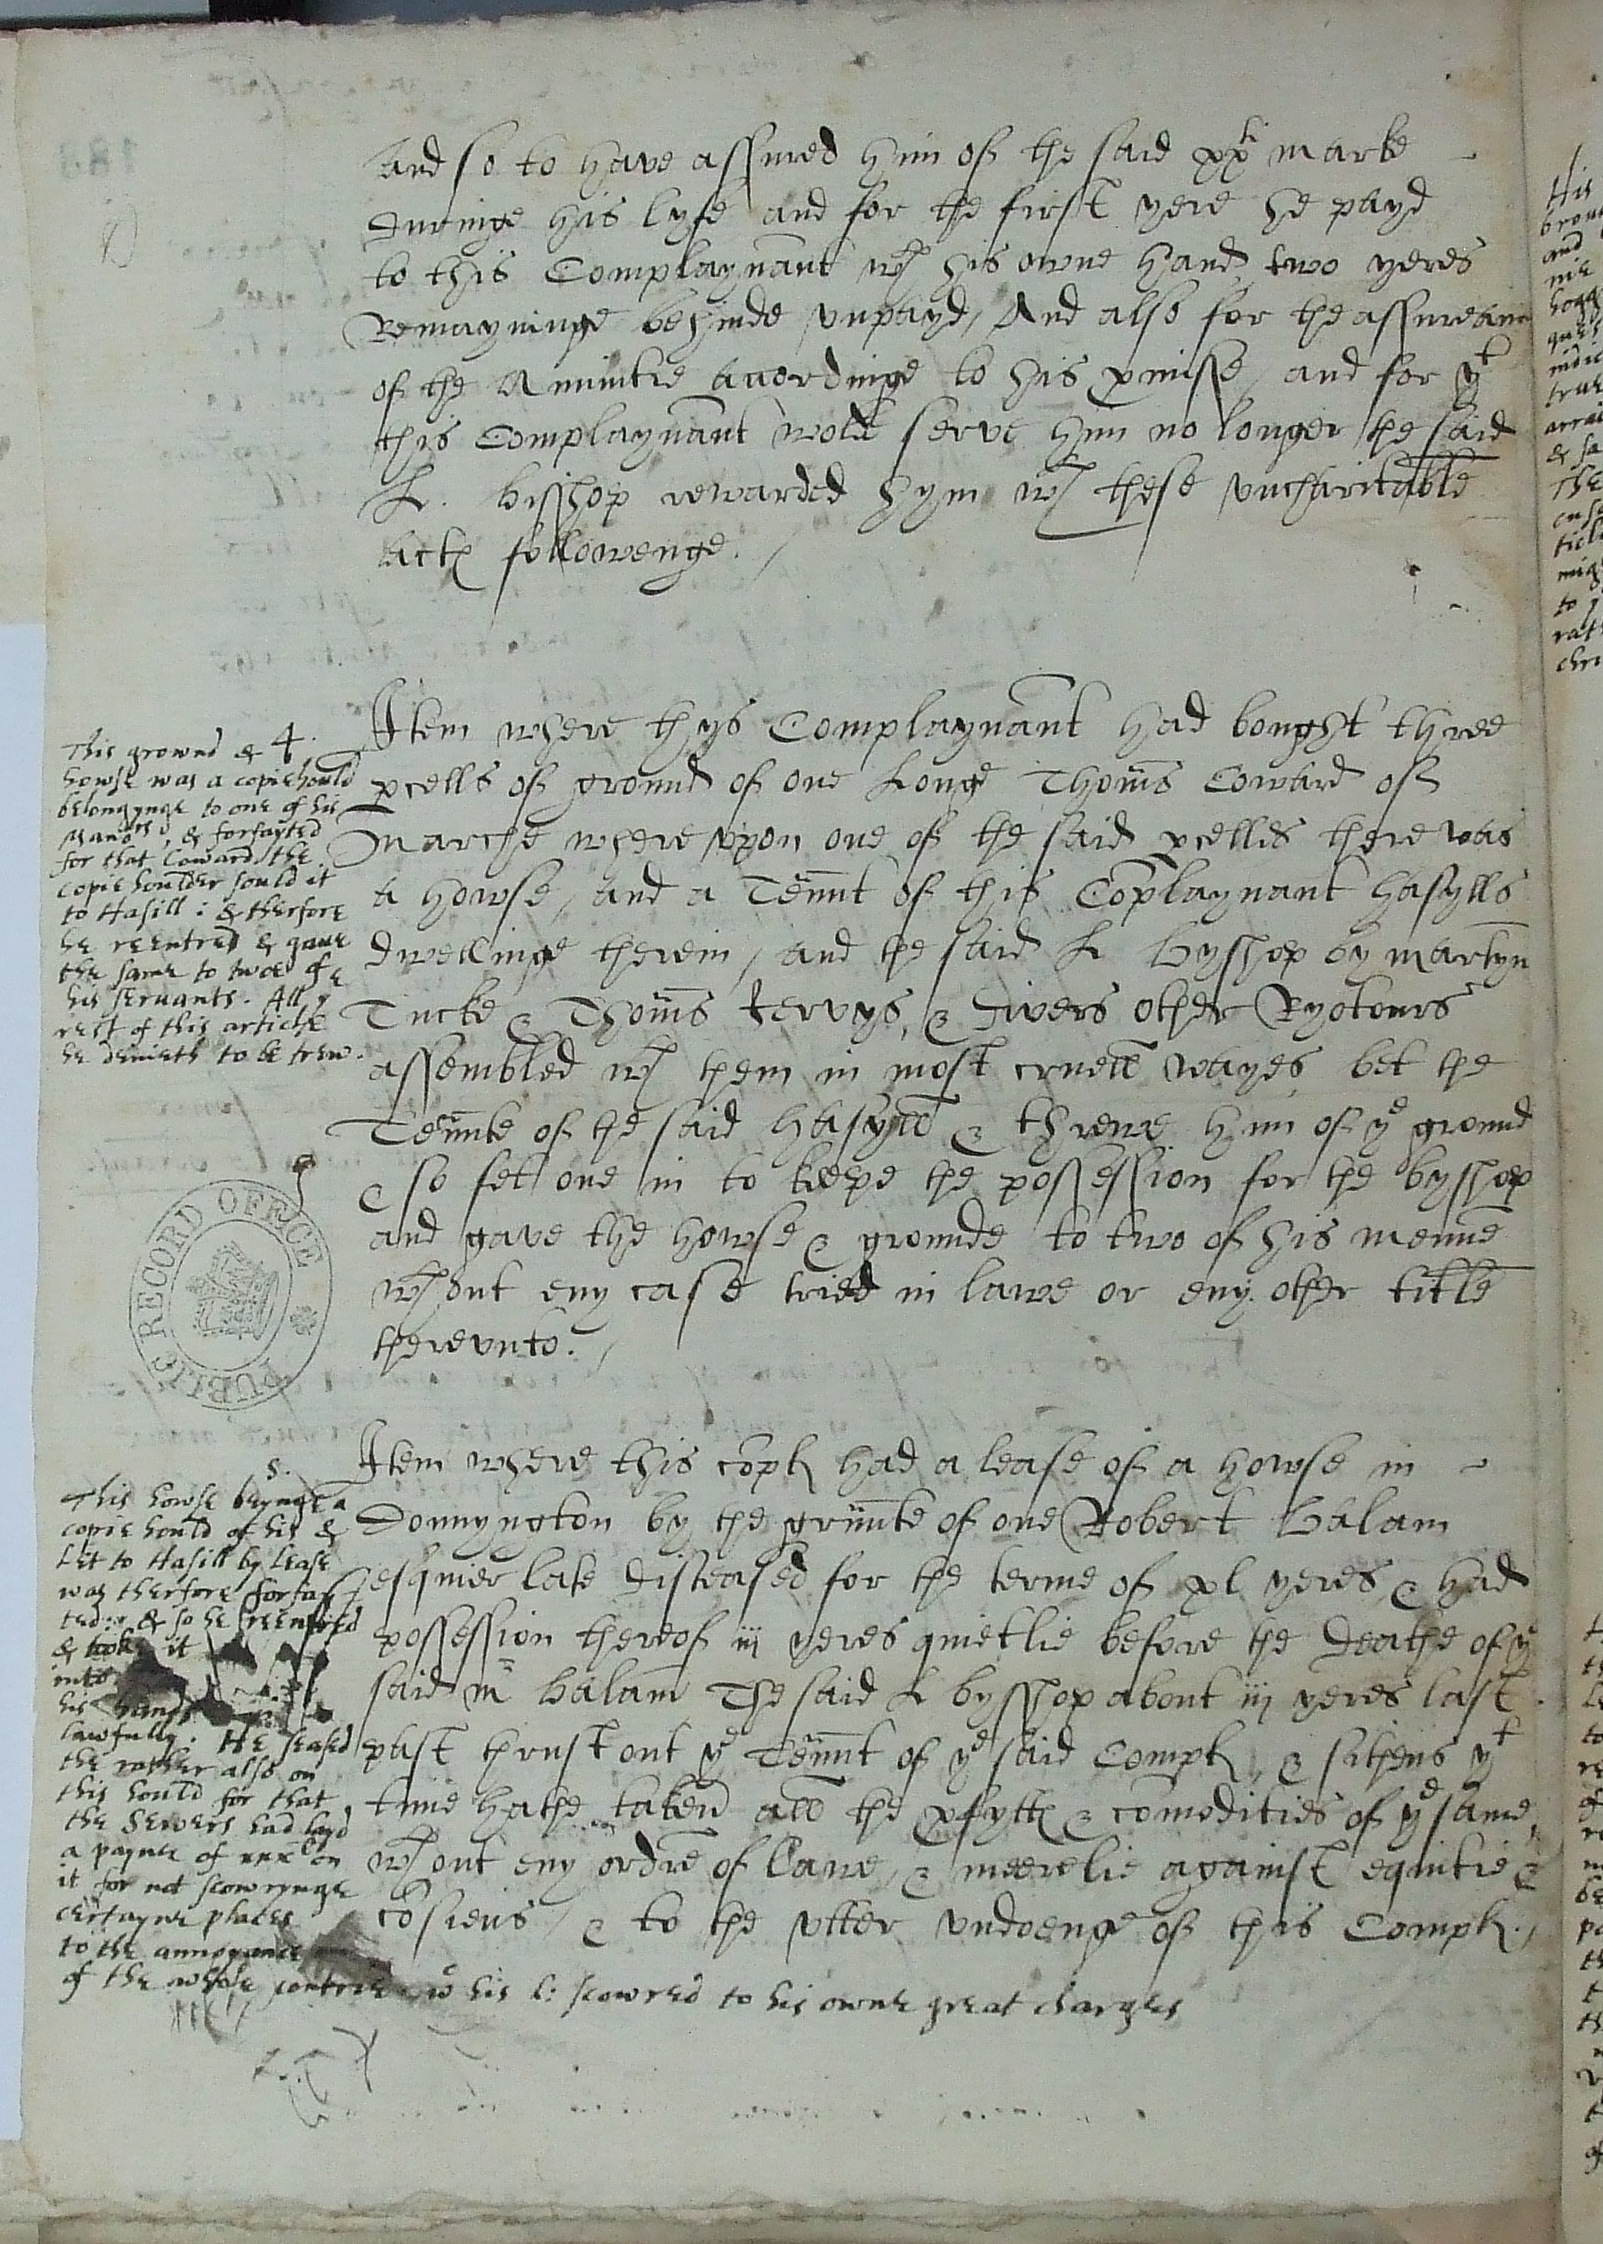 And so to have assured him of the said xxti marke
duringe his lyfe and for the first yere he payd
to this Complaynant wth his owne hand, two yeres
Remayninge behinde vnpayd, And also for the assurean
of the Annuitie accordinge to his pmisse, and for yt
this Complaynant wold serve him no longer the said
L. Bisshop rewarded hym wth these vncharitable
acts followenge.
4.
Item where thys Complaynant had bought three
pcells of ground of one Longe Thoms Coward of
Marche where vpon one of the said pcelles there was
a howse, and a Tennt of this Coplaynant hasylls
dwellinge therein, and the said L Byshop by martyn
Tucke & Thoms Jervys, & divers other Ryotours
assembled wth them in most cruell wayes bet the
Tennte of the said hasyll & threwe him of ye ground
& so set one in to keepe the possession for the byshop
and gave the howse & grounde to two of his menne
wthout eny case tried in lawe or eny other title
therevnto.
This grownd &
howse was a copiehould
belongynge to one of his
Manors, & forfayted
for that Coward the
copie houlder sould it
to Hasill: & therfore
he reentred & gaue
the same to twoe of
his servants. All ye
rest of this article
he denieth to be trew.
PUBLIC RECORD OFFICE
5.
Item where this coplt had a lease of a howse in
Donnyngton by the grunte of one Robert Balam
esquier late disceased for the terme of xl yeres, & had
possession thereof iij yeres quietlie before the deathe of ye
said mr Balam The said L bysshop about iij yeres last
past thrust out ye Tennt of ye said Complt, & sithens yt
time hathe taken all the pfytts & comodities of ye same,
wthout eny ordre of Lawe, & meerelie against equitie &
cosiens, & to the vtter vndoenge of this Complt.
This howse beynge a
copie hould of his &
Let to Hasill by Lease
was therfore forfay
ted: & so he reentred
& tooke it
into
his hands
lawfully: He seased
the rather also on
this hould for that
the Sewers had layd
a payne of xxx on
it for not scowrynge
certayne places
to the annoyance
of the whole contrie wc his l: scowred to his owne great charges
His
and